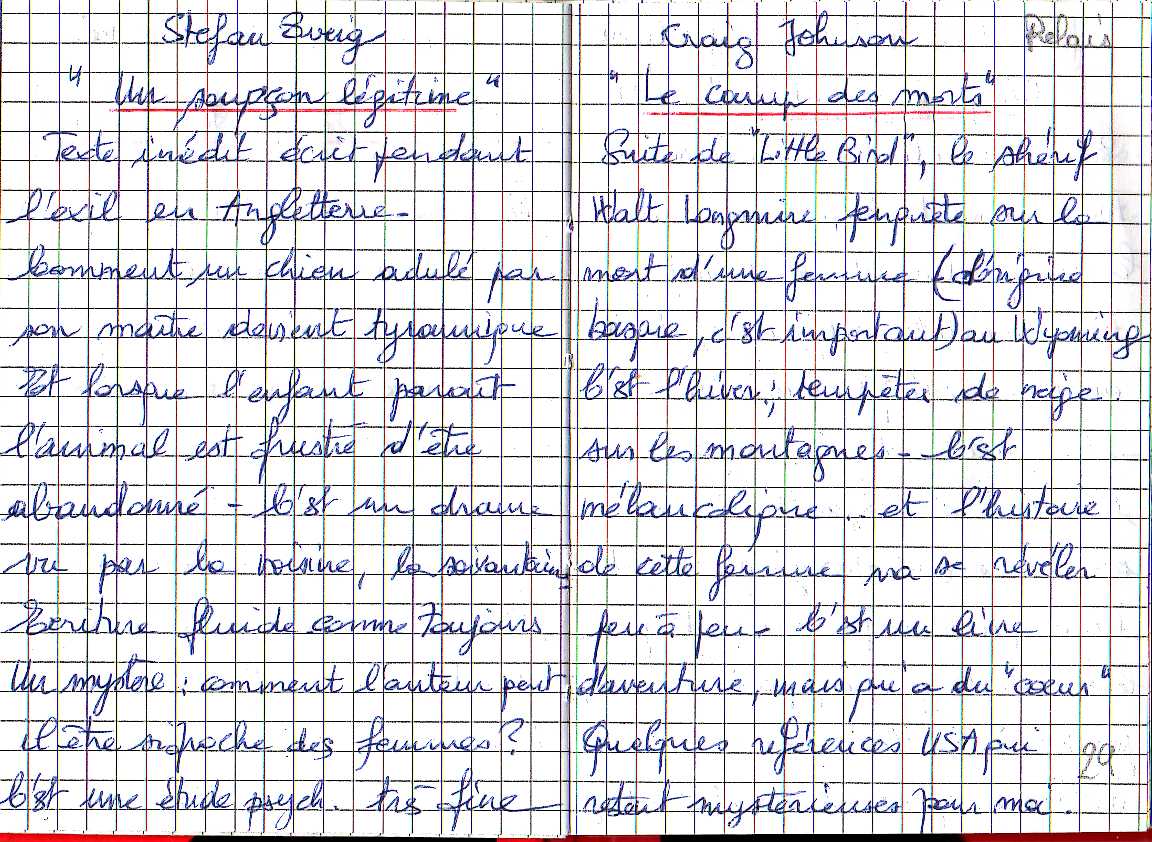 Stefan Zweig
" Un soupçon légitime "
Texte inédit écrit pendant
l'exil en Angleterre -
Comment, un chien adulé par
son maître devient tyrannique
Et lorsque l'enfant paraît
l'animal est frustré d'être
abandonné - C'est un drame
vu par la voisine, la soixantaine
Ecriture fluide comme toujours
Un mystère : comment l'auteur peut
il être si proche des femmes ?
C'est une étude psych. très fine
Craig Johnson
Relais
" Le camp des morts "
Suite de "Little Bird", le shérif
Walt Longmire enquête sur la
mort d'une femme (d'origine
basque, c'est important) au Wyoming
C'est l'hiver ; tempêtes de neige
sur les montagnes - C'est
mélancolique .. et l'histoire
de cette femme va se révéler
peu à peu - C'est un livre
d'aventure, mais qui a du "coeur"
Quelques références USA qui
restent mystérieuses pour moi.
29